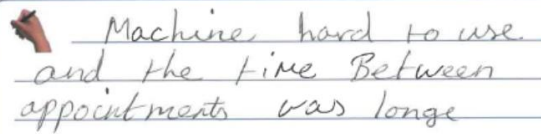 Machine hard to use
and the time Between
appointments was longe